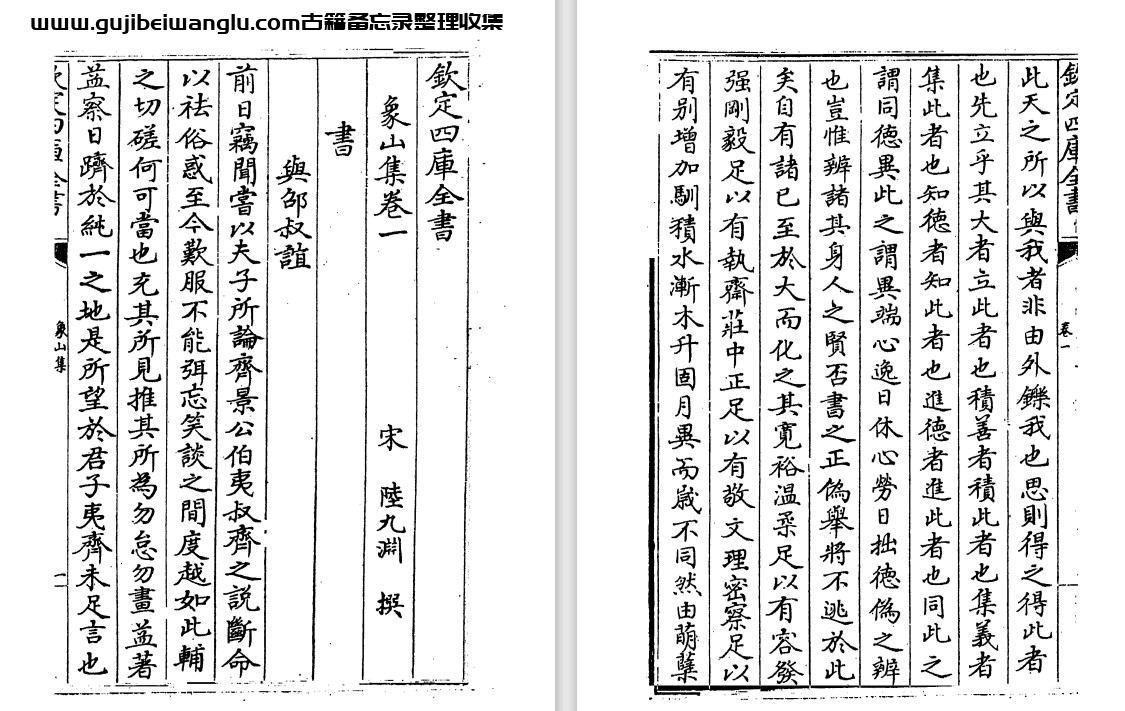 www.gujibeiwanglu.com古籍备忘录整理收集
欽定四庫全書
象山集卷一
宋 陸九淵 撰
書
與邵叔誼
前日竊聞嘗以夫子所論齊景公伯夷叔齊之說斷命
以祛俗惑至今歎服不能弭忘笑談之間度越如此輔
之切磋何可當也充其所見推其所為勿怠勿畫益著
益察日躋於純一之地是所望於君子夷齊未足言也
欽定四庫全書
象山集
一
欽定四庫全書
卷一
此天之所以與我者非由外鑠我也思則得之得此者
也先立乎其大者立此者也積善者積此者也集義者
集此者也知德者知此者也進德者進此者也同此之
謂同德異此之謂異端心逸日休心勞日拙德偽之辨
也豈惟辨諸其身人之賢否書之正偽舉將不逃於此
矣自有諸已至於大而化之其寛裕温柔足以有容發
强剛毅足以有執齋莊中正足以有敬文理密察足以
有别增加馴積水漸木升固月異而嵗不同然由萌蘖